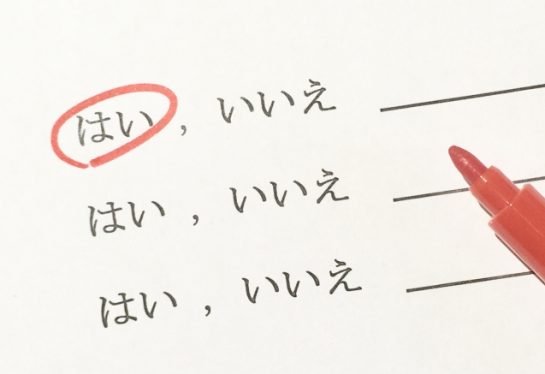 はい , いいえ
はい , いいえ
はい , いいえ